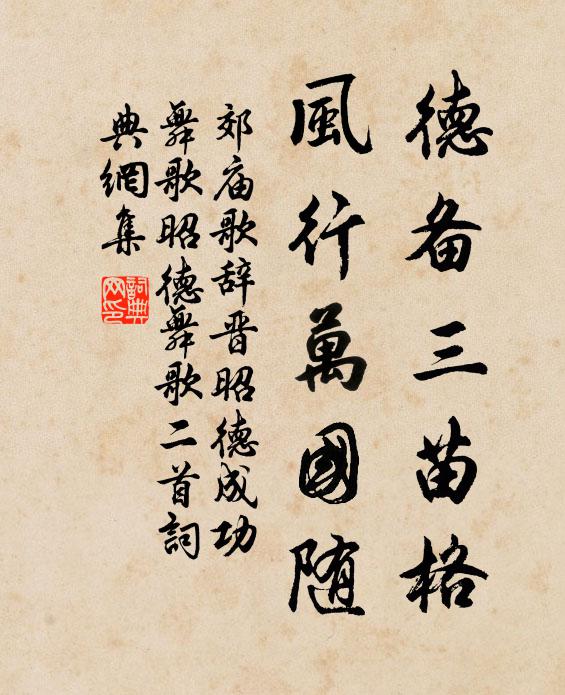 德备三苗格
風行萬國随
郊庙歌辞晋昭德成功
舞歌昭德舞歌二首詞
典網集
詞典网印